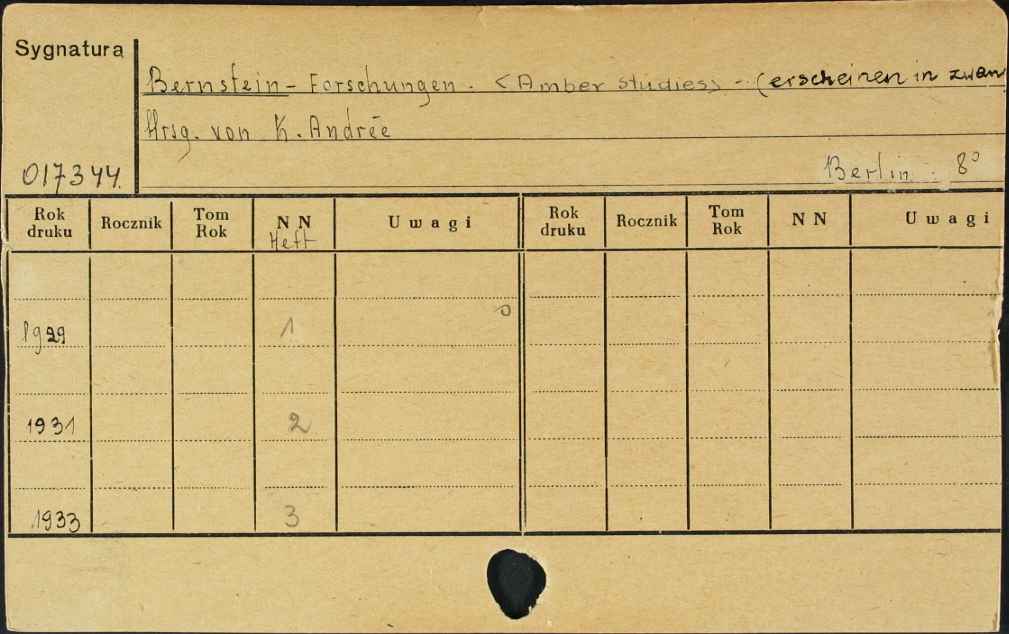 Sygnatura
Bernstein-Forschungen. <Amber studies> - (erscheinen in zwan
Hrsg. von K. Andrée
017344.
Berlin. 8°
Rok druku Rocznik Tom Rok NN Heft Uwagi Rok druku Rocznik Tom Rok NN Uwagi
1929 1
1931 2
1933 3